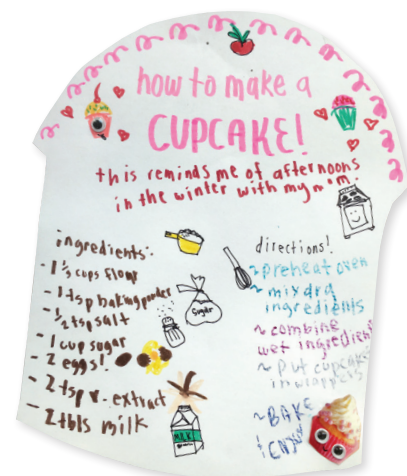 how to make a
CUPCAKE!
this reminds me of afternoons
in the winter with my mom.
ingredients:
- 1 ½ cups flour
- 1 tsp baking powder
- ½ tsp salt
- 1 cup sugar
- 2 eggs!
- 2 tsp v. extract
- 2 tbls milk
Sugar
MILK
directions!
~ preheat oven
~ mix dry
ingredients
~ combine
wet ingredients
~ put cupcake
in wrappers
~ BAKE
! enjoy